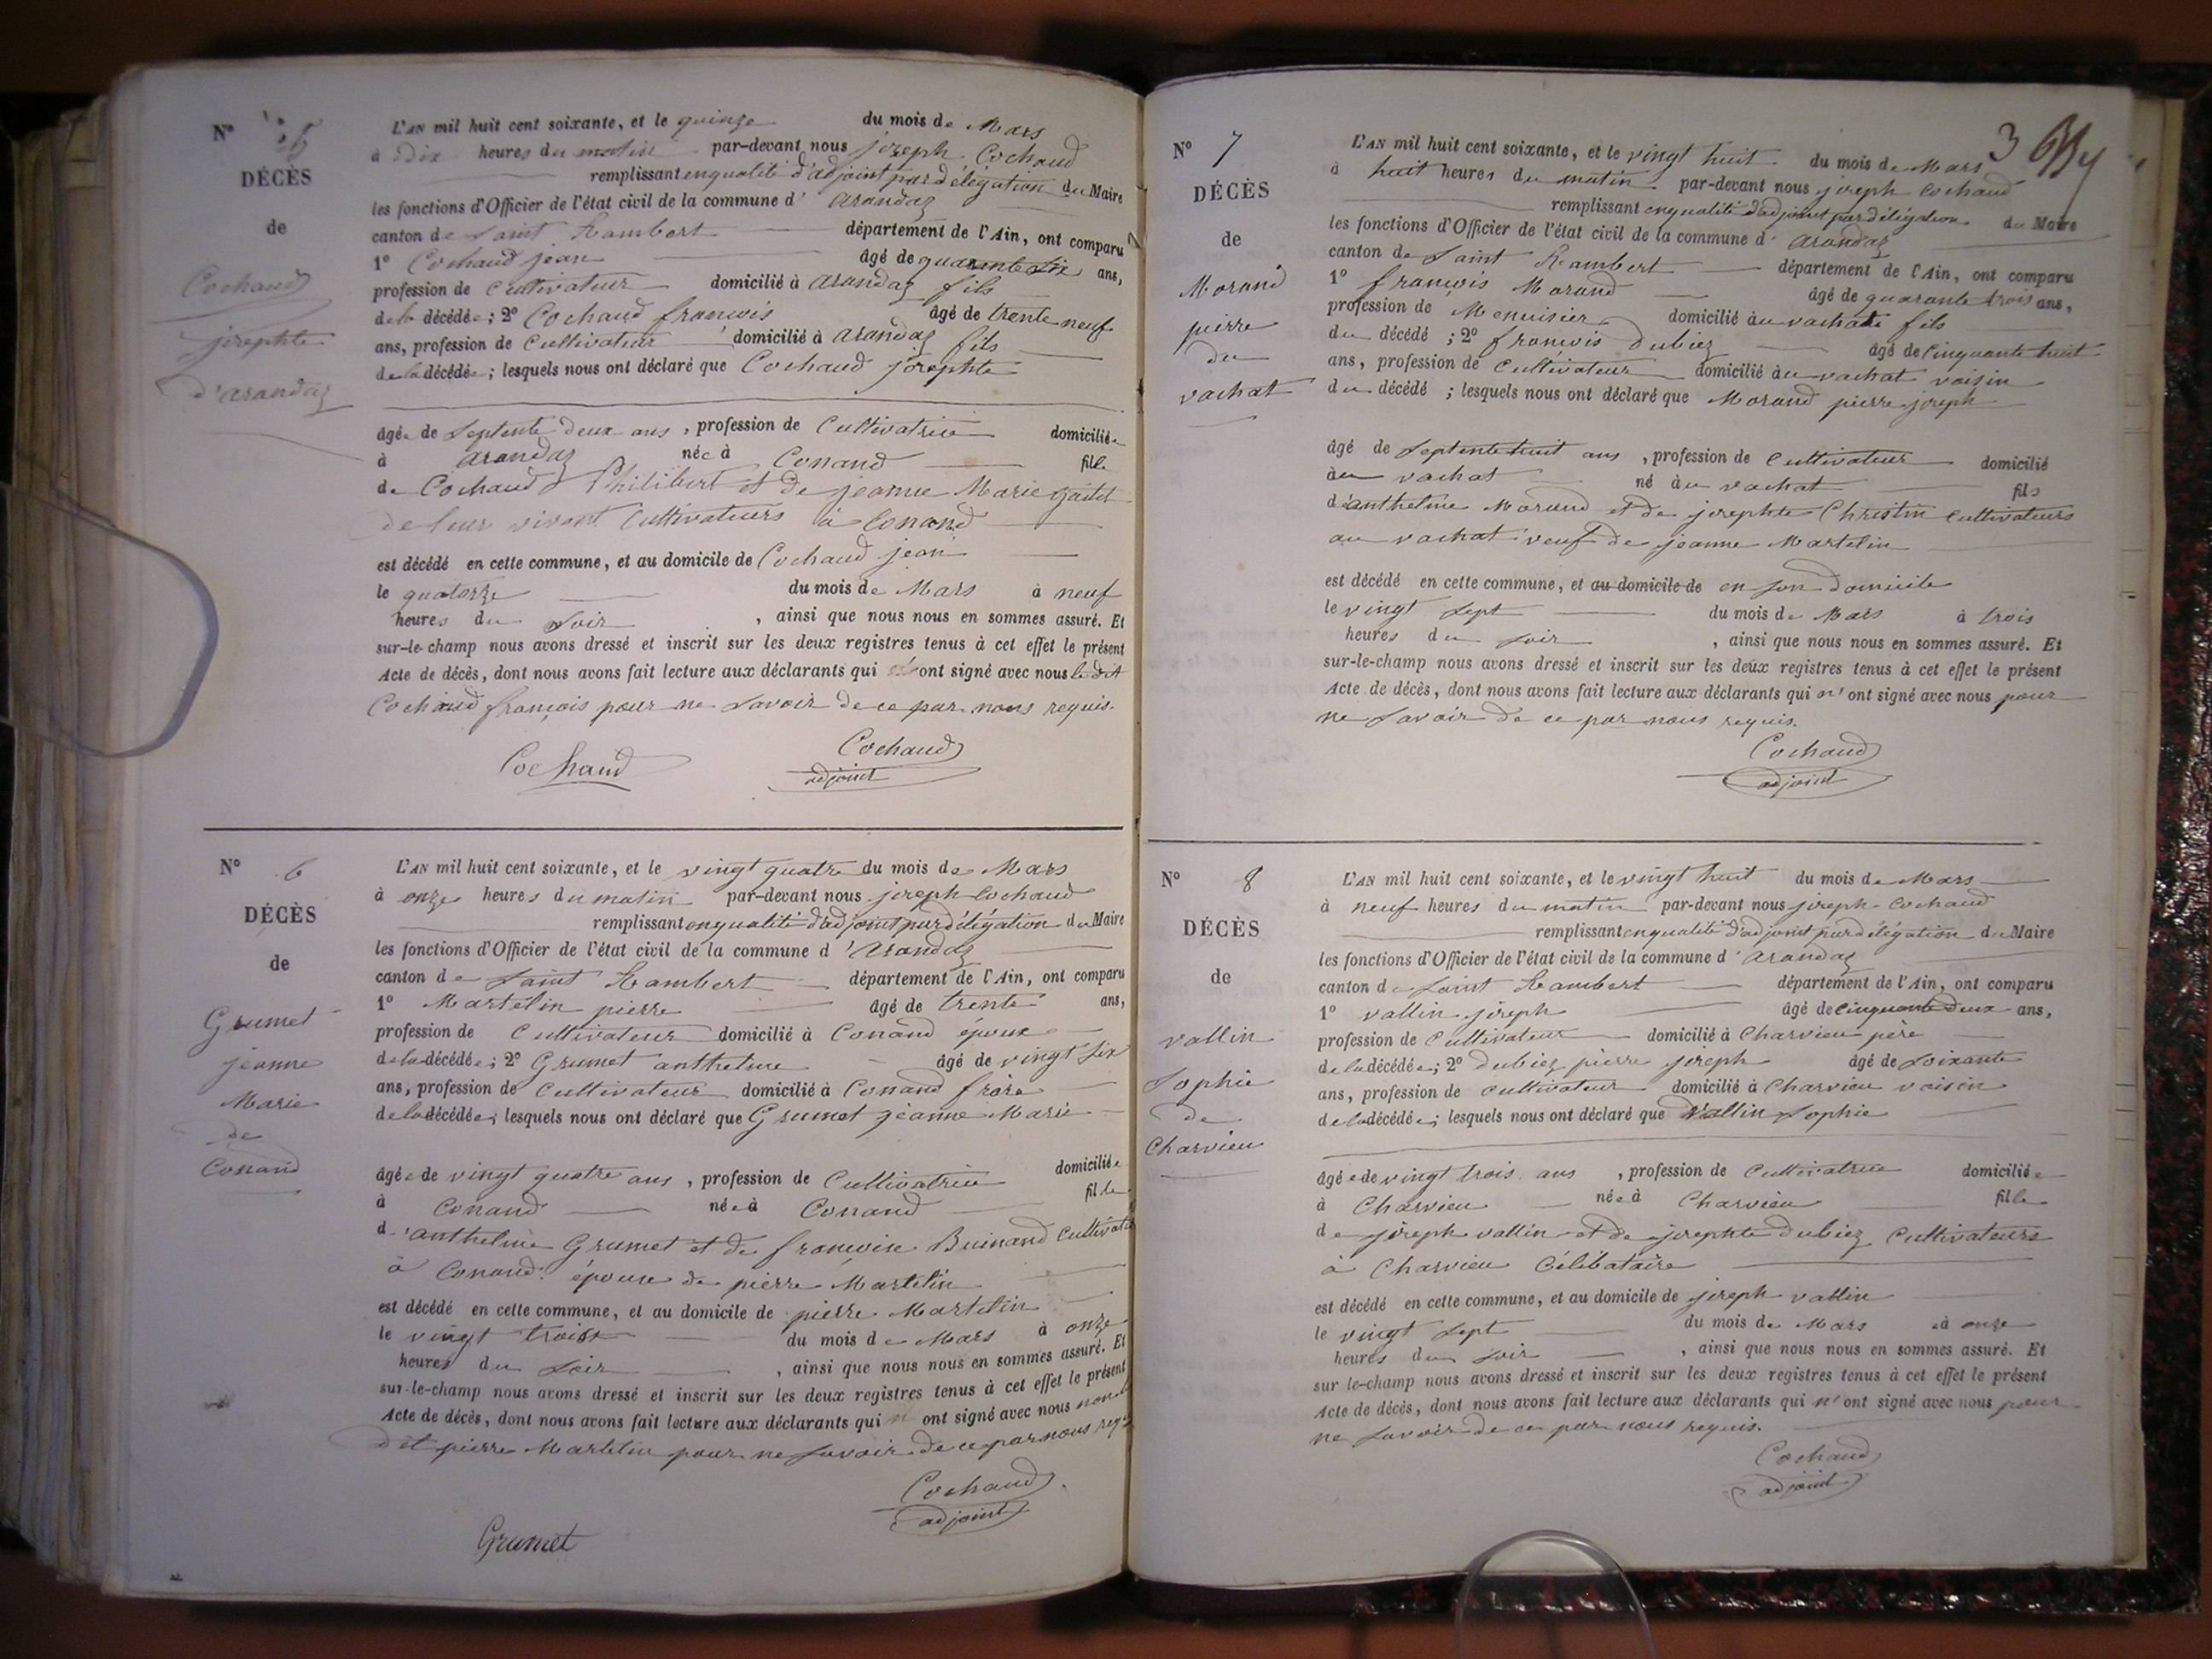 N° 5
DÉCÈS
de
Cochaud
josephte
d'arandaz
L'AN mil huit cent soixante, et le quinze du mois de Mars
à dix heures du matin par-devant nous joseph Cochaud
remplissant en qualité d'adjoint par délégation du Maire
les fonctions d'Officier de l'état civil de la commune d' arandaz
canton de Saint Rambert département de l'Ain, ont comparu
1° Cochaud jean âgé de quarante six ans,
profession de cultivateur domicilié à arandaz fils
de la décédée; 2° Cochaud francois âgé de trente neuf
ans, profession de Cultivateur domicilié à arandaz fils
de la décédée; lesquels nous ont déclaré que Cochaud josephte
âgée de septente deux ans, profession de Cultivatrice domiciliée
à arandaz née à Conand fille
de Cochaud Philibert et de jeanne Marie
de leur vivant Cultivateurs à Conand
est décédé en cette commune, et au domicile de Cochaud jean
le quatorze du mois de Mars à neuf
heures du soir, ainsi que nous nous en sommes assuré. Et
sur-le-champ nous avons dressé et inscrit sur les deux registres tenus à cet effet le présent
Acte de décès, dont nous avons fait lecture aux déclarants qui ont signé avec nous le dit
Cochaud françois pour ne savoir de ce par nous requis.
Cochaud Cochaud
adjoint
N° 6
DÉCÈS
de
Grumet
jeanne
Marie
de
Conand
L'AN mil huit cent soixante, et le vingt quatre du mois de Mars
à onze heures du matin par-devant nous joseph Cochaud
remplissant en qualité d'adjoint par délégation du Maire
les fonctions d'Officier de l'état civil de la commune d'Arandaz
canton de Saint Rambert département de l'Ain, ont comparu
1° Martelin pierre âgé de trente ans,
profession de Cultivateur domicilié à Conand epoux
de la décédée; 2° Grumet anthelme âgé de vingt six
ans, profession de Cultivateur domicilié à Conand frère
de la décédée; lesquels nous ont déclaré que Grumet jeanne Marie
âgée de vingt quatre ans, profession de Cultivatrice domiciliée
à Conand née à Conand fille
d'anthelme Grumet et de francoise Buinand Cultivat
à Conand épouse de pierre Martelin
est décédé en cette commune, et au domicile de pierre Martelin
le vingt trois du mois de Mars à onze
heures du soir, ainsi que nous nous en sommes assuré. Et
sur-le-champ nous avons dressé et inscrit sur les deux registres tenus à cet effet le présent
Acte de décès, dont nous avons fait lecture aux déclarants qui ont signé avec nous
dit pierre Martelin pour ne savoir de ce par nous req
Cochaud
adjoint
Grumet
3
N° 7
DÉCÈS
de
Morand
pierre
du
vachat
L'AN mil huit cent soixante, et le vingt huit du mois de Mars
à huit heures du matin par-devant nous joseph Cochaud
remplissant en qualité d'adjoint par délégation du Maire
les fonctions d'Officier de l'état civil de la commune d' arandaz
canton de Saint Rambert département de l'Ain, ont comparu
1° francois Morand âgé de quarante trois ans,
profession de Menuisier domicilié au vachat fils
du décédé; 2° francois dubiez âgé de cinquante huit
ans, profession de Cultivateur domicilié au vachat voisin
du décédé; lesquels nous ont déclaré que Morand pierre joseph
âgé de septente huit ans, profession de Cultivateur domicilié
àu vachat né àu vachat fils
d'anthelme Morand et de josephte Christin Cultivateurs
au vachat veuf de jeanne Martelin
est décédé en cette commune, et au domicile de en son domicile
le vingt sept du mois de Mars à trois
heures du soir, ainsi que nous nous en sommes assuré. Et
sur-le-champ nous avons dressé et inscrit sur les deux registres tenus à cet effet le présent
Acte de décès, dont nous avons fait lecture aux déclarants qui n'ont signé avec nous pour
ne savoir de ce par nous requis.
Cochaud
adjoint
N° 8
DÉCÈS
de
vallin
Sophie
de
Charvieu
L'AN mil huit cent soixante, et le vingt huit du mois de Mars
à neuf heures du matin par-devant nous joseph Cochaud
remplissant en qualité d'adjoint par délégation du Maire
les fonctions d'Officier de l'état civil de la commune d'arandaz
canton de Saint Rambert département de l'Ain, ont comparu
1° vallin joseph âgé de cinquante deux ans,
profession de Cultivateur domicilié à Charvieu père
de la décédée; 2° dubiez pierre joseph âgé de soixante
ans, profession de cultivateur domicilié à Charvieu voisin
de la décédée; lesquels nous ont déclaré que Vallin Sophie
âgée de vingt trois ans, profession de Cultivatrice domiciliée
à Charvieu née à Charvieu fille
de joseph vallin et de josephte dubiez Cultivateurs
à Charvieu Célibataire
est décédé en cette commune, et au domicile de joseph vallin
le vingt sept du mois de Mars à onze
heures du soir, ainsi que nous nous en sommes assuré. Et
sur le-champ nous avons dressé et inscrit sur les deux registres tenus à cet effet le présent
Acte de décès, dont nous avons fait lecture aux déclarants qui n'ont signé avec nous pour
ne savoir de ce par nous requis.
Cochaud
adjoint